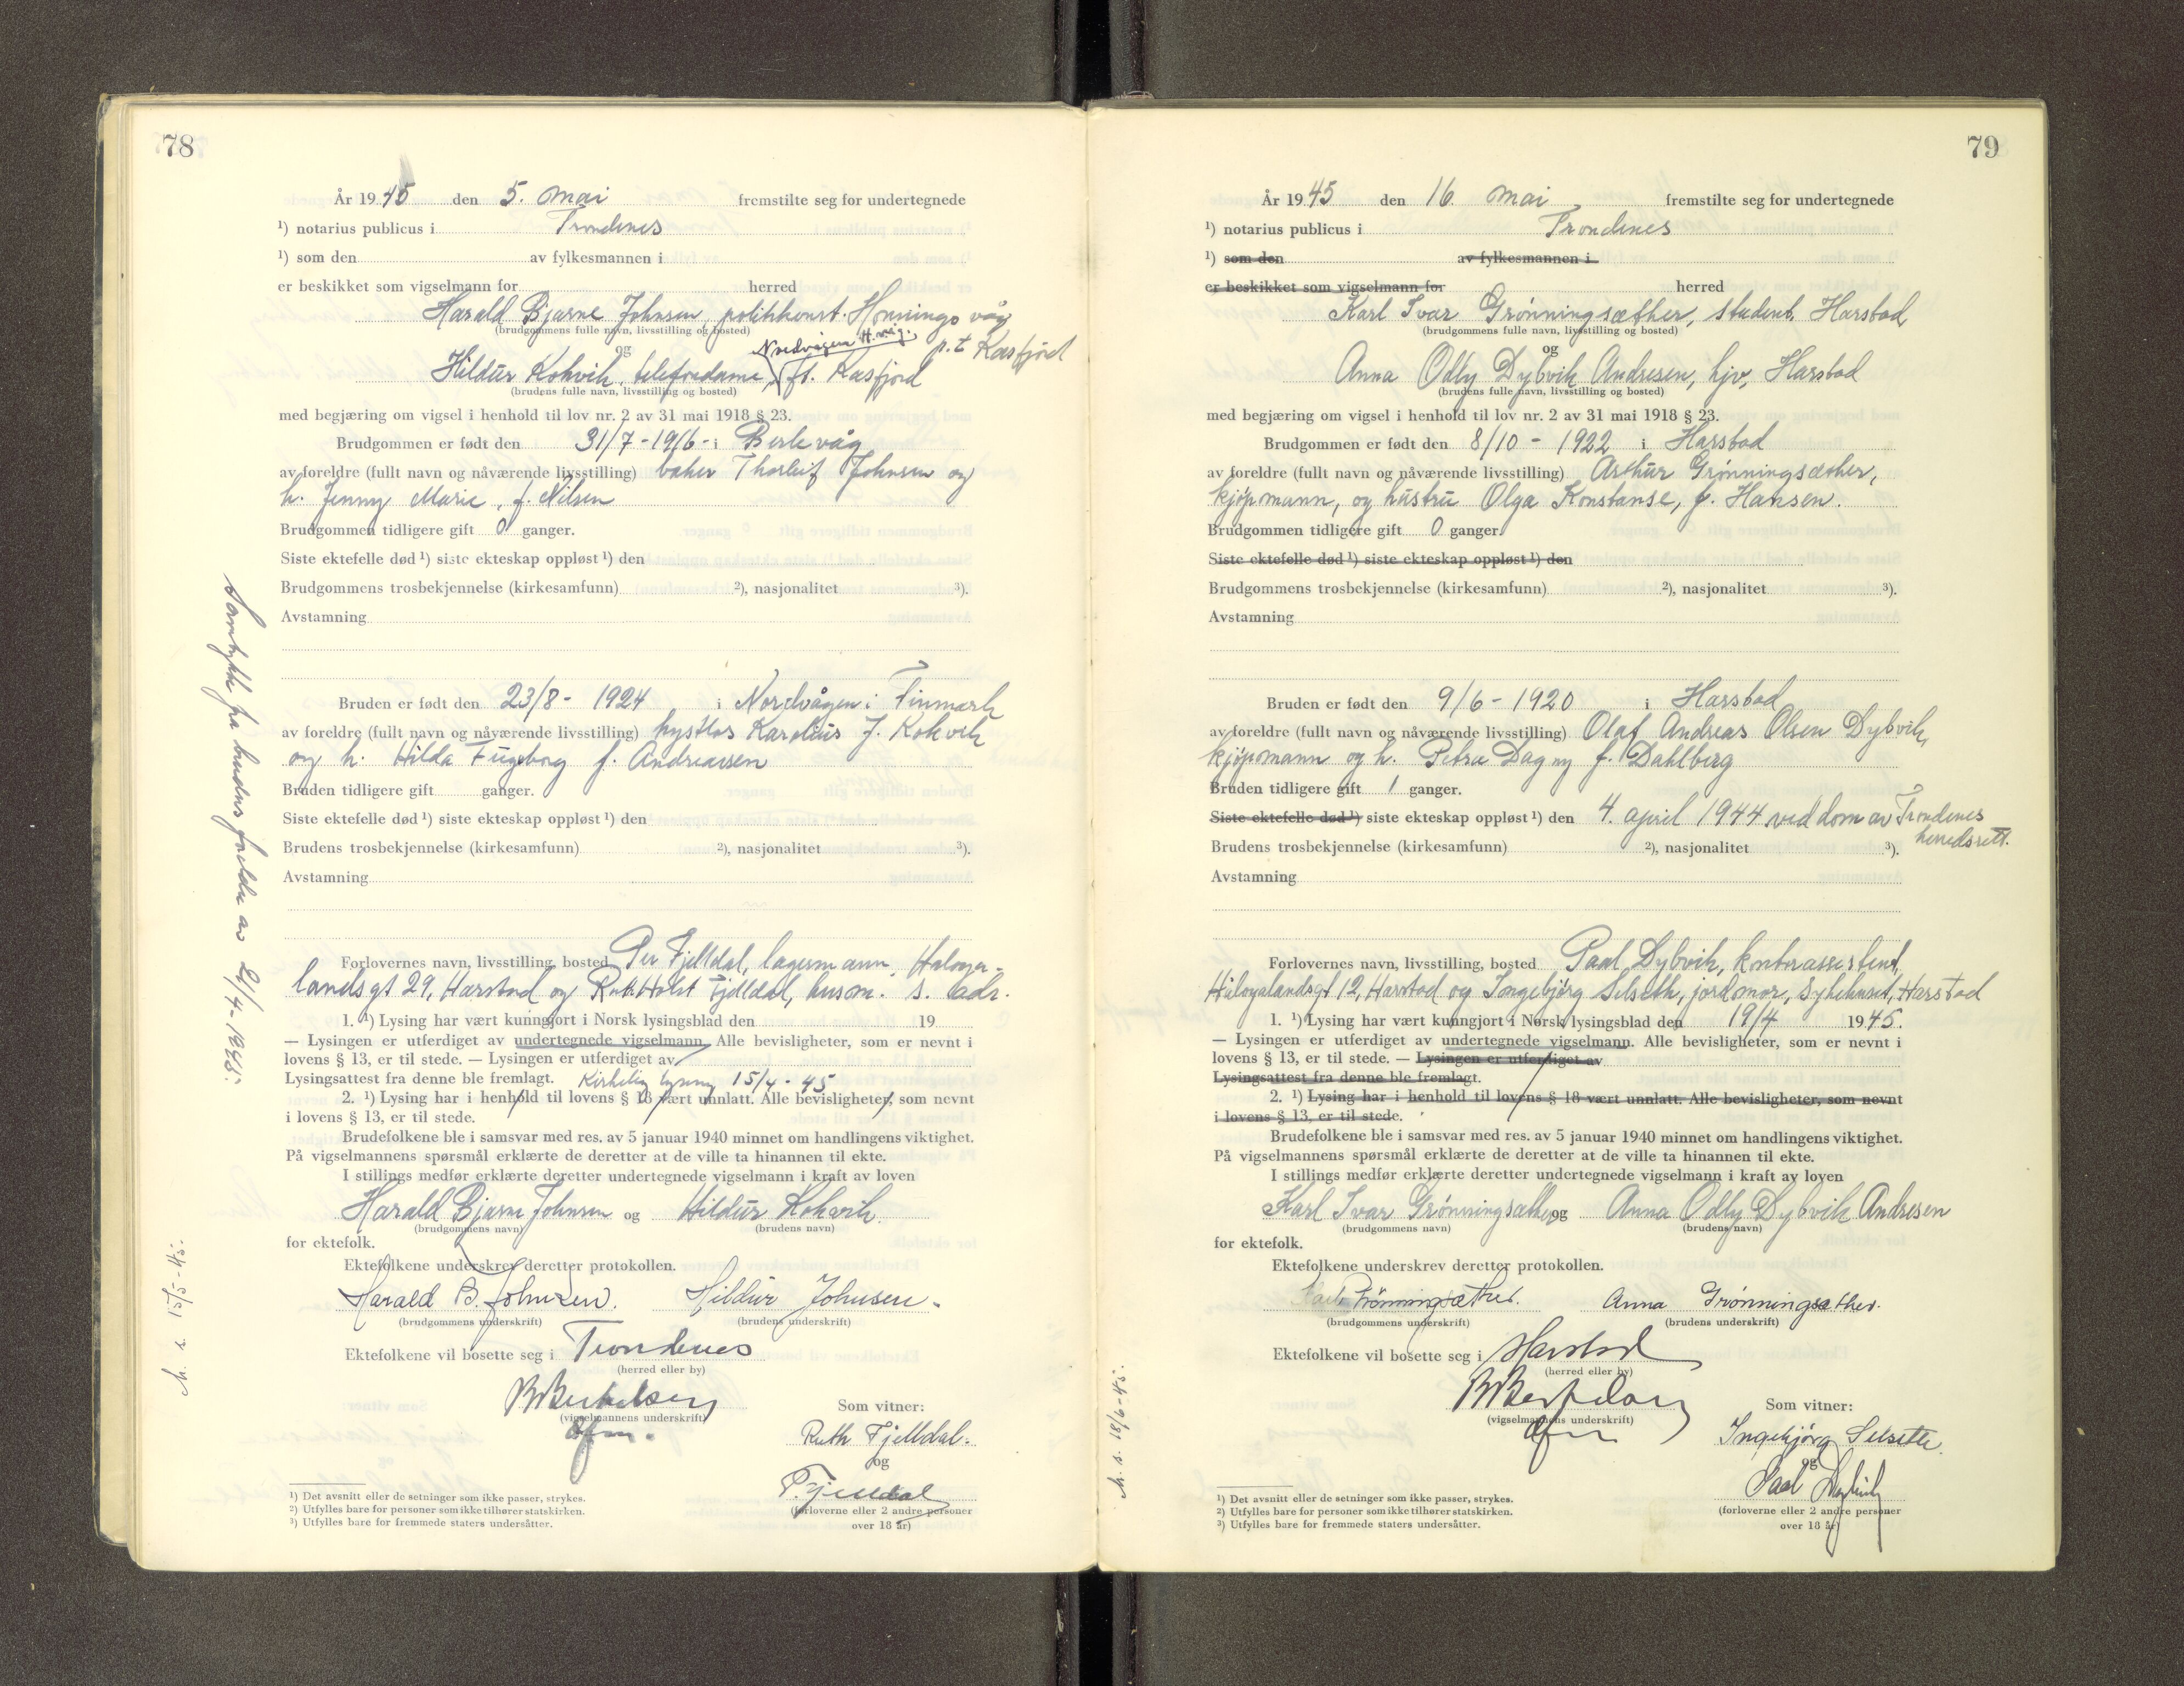 78
År 1945 den 5. mai fremstilte seg for undertegnede
¹) notarius publicus i Trondenes
¹) som den av fylkesmannen i
er beskikket som vigselmann for herred
Harald Bjarne Johnsen, politikonst. Honningsvåg
(brudgommens fulle navn, livsstilling og bosted)
p.t. Kasfjord
og
Nordvågen H.våg.
Hildur Kokvik, telefondame, f.t. Kasfjord
(brudens fulle navn, livsstilling og bosted)
med begjæring om vigsel i henhold til lov nr. 2 av 31 mai 1918 § 23.
Brudgommen er født den 31/7-1916- i Berlevåg
av foreldre (fullt navn og nåværende livsstilling) baker Thorleif Johnsen og
h. Jenny Marie, f. Nilsen
Brudgommen tidligere gift 0 ganger.
Siste ektefelle død ¹) siste ekteskap oppløst ¹) den
Brudgommens trosbekjennelse (kirkesamfunn) ²), nasjonalitet ³).
Avstamning
Bruden er født den 23/8- 1924 i Nordvågen i Finmark
av foreldre (fullt navn og nåværende livsstilling) Karolius J. Kokvik
og h. Hilda Ingeborg f. Andreassen
Bruden tidligere gift ganger.
Siste ektefelle død ¹) siste ekteskap oppløst ¹) den
Brudens trosbekjennelse (kirkesamfunn) ²), nasjonalitet ³).
Avstamning
Forlovernes navn, livsstilling, bosted Per Fjelldal, lagermann, Haloga-
landsgt 29, Harstad og Ruth Holst Fjelldal, husm. s. adr.
1. ¹) Lysing har vært kunngjort i Norsk lysingsblad den 19
— Lysingen er utferdiget av undertegnede vigselmann. Alle bevisligheter, som er nevnt i
lovens § 13, er til stede. — Lysingen er utferdiget av
Lysingsattest fra denne ble fremlagt. Kirkelig lysning 15/4-45
2. ¹) Lysing har i henhold til lovens § 18 vært unnlatt. Alle bevisligheter, som nevnt
i lovens § 13, er til stede.
Brudefolkene ble i samsvar med res. av 5 januar 1940 minnet om handlingens viktighet.
På vigselmannens spørsmål erklærte de deretter at de ville ta hinannen til ekte.
I stillings medfør erklærte deretter undertegnede vigselmann i kraft av loven
Harald Bjarne Johnsen og Hildur Kokvik
(brudgommens navn) (brudens navn)
for ektefolk.
Ektefolkene underskrev deretter protokollen.
Harald B. Johnsen. Hildur Johnsen.
(brudgommens underskrift) (brudens underskrift)
Ektefolkene vil bosette seg i Trondenes
(herred eller by)
(vigselmannens underskrift)
Som vitner:
Ruth Fjelldal.
og
P. Fjelldal
(forloverne eller 2 andre personer
over 18 år)
¹) Det avsnitt eller de setninger som ikke passer, strykes.
²) Utfylles bare for personer som ikke tilhører statskirken.
³) Utfylles bare for fremmede staters undersåtter.
Samtykke fra brudens foreldre av
m. s. 15/5-45.
79
År 1945 den 16 mai fremstilte seg for undertegnede
¹) notarius publicus i Trondenes
¹) som den av fylkesmannen i
er beskikket som vigselmann for herred
Karl Ivar Grønningsæther, student, Harstad
(brudgommens fulle navn, livsstilling og bosted)
og
Anna Odly Dybvik Andresen, hjv, Harstad
(brudens fulle navn, livsstilling og bosted)
med begjæring om vigsel i henhold til lov nr. 2 av 31 mai 1918 § 23.
Brudgommen er født den 8/10 - 1922 i Harstad
av foreldre (fullt navn og nåværende livsstilling) Arthur Grønningsæther,
kjøpmann, og hustru Olga Konstanse, f. Hansen.
Brudgommen tidligere gift 0 ganger.
Siste ektefelle død ¹) siste ekteskap oppløst ¹) den
Brudgommens trosbekjennelse (kirkesamfunn) ²), nasjonalitet ³).
Avstamning
Bruden er født den 9/6 - 1920 i Harstad
av foreldre (fullt navn og nåværende livsstilling) Olaf Andreas Olsen Dybvik,
kjøpmann og h. Petra Dagny f. Dahlberg
Bruden tidligere gift 1 ganger.
Siste ektefelle død ¹) siste ekteskap oppløst ¹) den 4. april 1944 ved dom av Trondenes
herredsrett.
Brudens trosbekjennelse (kirkesamfunn) ²), nasjonalitet ³).
Avstamning
Forlovernes navn, livsstilling, bosted Paal Dybvik, kontorassistent,
Hålogalandsgt 12, Harstad og Ingebjørg Selseth, jordmor, Sykehuset, Harstad
1. ¹) Lysing har vært kunngjort i Norsk lysingsblad den 19/4 1945.
— Lysingen er utferdiget av undertegnede vigselmann. Alle bevisligheter, som er nevnt i
lovens § 13, er til stede. — Lysingen er utferdiget av
Lysingsattest fra denne ble fremlagt.
2. ¹) Lysing har i henhold til lovens § 18 vært unnlatt. Alle bevisligheter, som nevnt
i lovens § 13, er til stede.
Brudefolkene ble i samsvar med res. av 5 januar 1940 minnet om handlingens viktighet.
På vigselmannens spørsmål erklærte de deretter at de ville ta hinannen til ekte.
I stillings medfør erklærte deretter undertegnede vigselmann i kraft av loven
Karl Ivar Grønningsæther og Anna Odly Dybvik Andresen
(brudgommens navn) (brudens navn)
for ektefolk.
Ektefolkene underskrev deretter protokollen.
Karl Grønningsæther. Anna Grønningsæther.
(brudgommens underskrift) (brudens underskrift)
Ektefolkene vil bosette seg i Harstad
(herred eller by)
(vigselmannens underskrift)
Som vitner:
Ingebjørg Selseth.
og
Paal Dybvik
(forloverne eller 2 andre personer
over 18 år)
¹) Det avsnitt eller de setninger som ikke passer, strykes.
²) Utfylles bare for personer som ikke tilhører statskirken.
³) Utfylles bare for fremmede staters undersåtter.
m. s. 18/6-45.